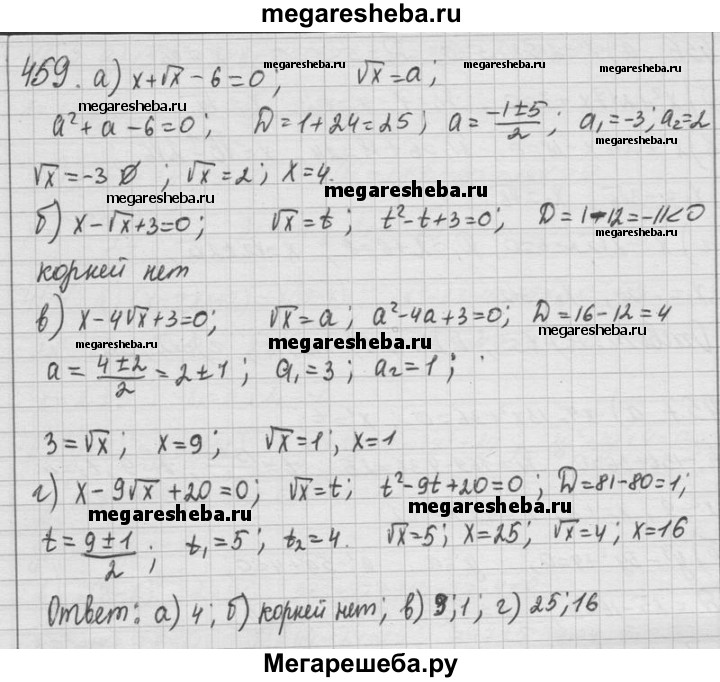 megaresheba.ru
459. а) x+√x−6=0; √x=a;
megaresheba.ru megaresheba.ru
megaresheba.ru
a²+a−6=0; D=1+24=25; a=(−1±5)/2; a₁=−3; a₂=2
megaresheba.ru
√x=−3 ∅; √x=2; x=4.
megaresheba.ru
megaresheba.ru
б) x−√x+3=0; √x=t; t²−t+3=0; D=1−12=−11<0
megaresheba.ru
корней нет
в) x−4√x+3=0; √x=a; a²−4a+3=0; D=16−12=4
megaresheba.ru
megaresheba.ru megaresheba.ru
a=(4±2)/2=2±1; a₁=3; a₂=1;
3=√x; x=9; √x=1, x=1
г) x−9√x+20=0; √x=t; t²−9t+20=0; D=81−80=1;
megaresheba.ru megaresheba.ru
megaresheba.ru
t=(9±1)/2; t₁=5; t₂=4. √x=5; x=25; √x=4; x=16
Ответ: а) 4; б) корней нет; в) 9;1; г) 25;16
Мегарешеба.ру